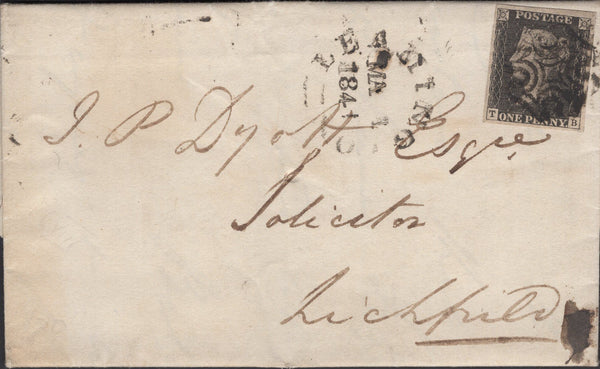 POSTAGE
T ONE PENNY B
MA 1
1841
J. P. Dyott Esqre
Solicitor
Lichfield